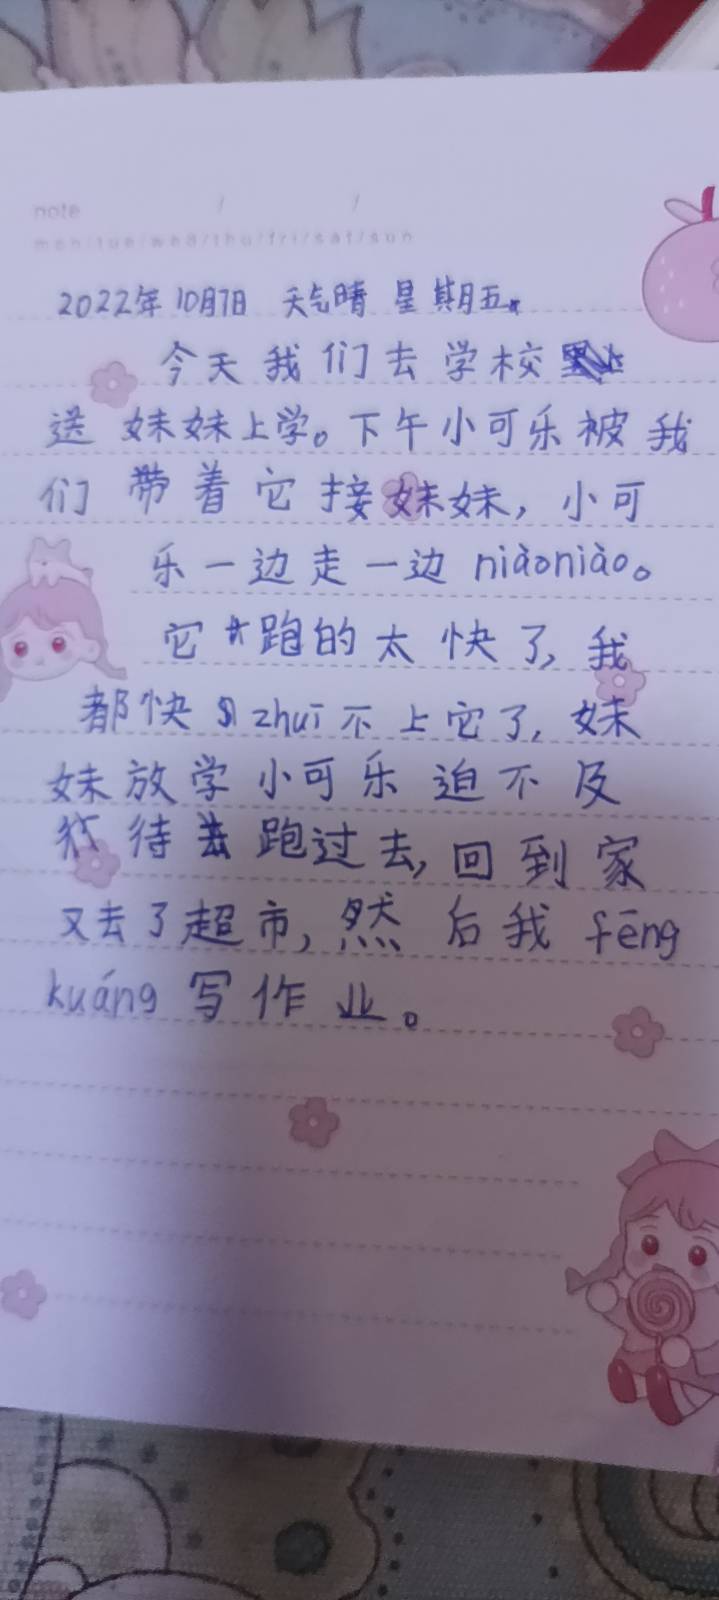 note / /
mon/tue/wed/thu/fri/sat/sun
2022年10月7日 天气晴 星期五。
今天我们去学校
送妹妹上学。下午小可乐被我
们带着它接妹妹，小可
乐一边走一边niàoniào。
它跑的太快了，我
都快zhuī不上它了，妹
妹放学小可乐迫不及
待跑过去，回到家
又去了超市，然后我fēng
kuáng写作业。